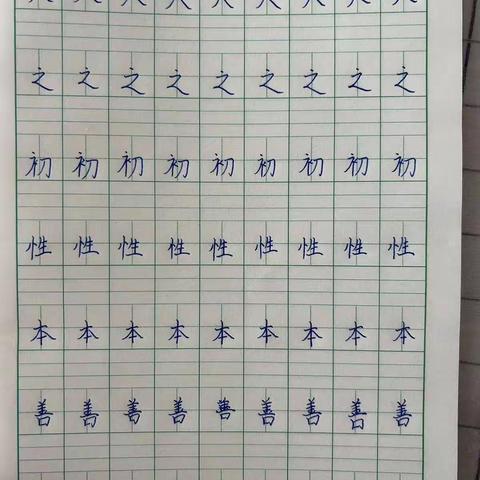 之之之之之之之之之
初初初初初初初初初
性性性性性性性性性
本本本本本本本本本
善善善善善善善善善